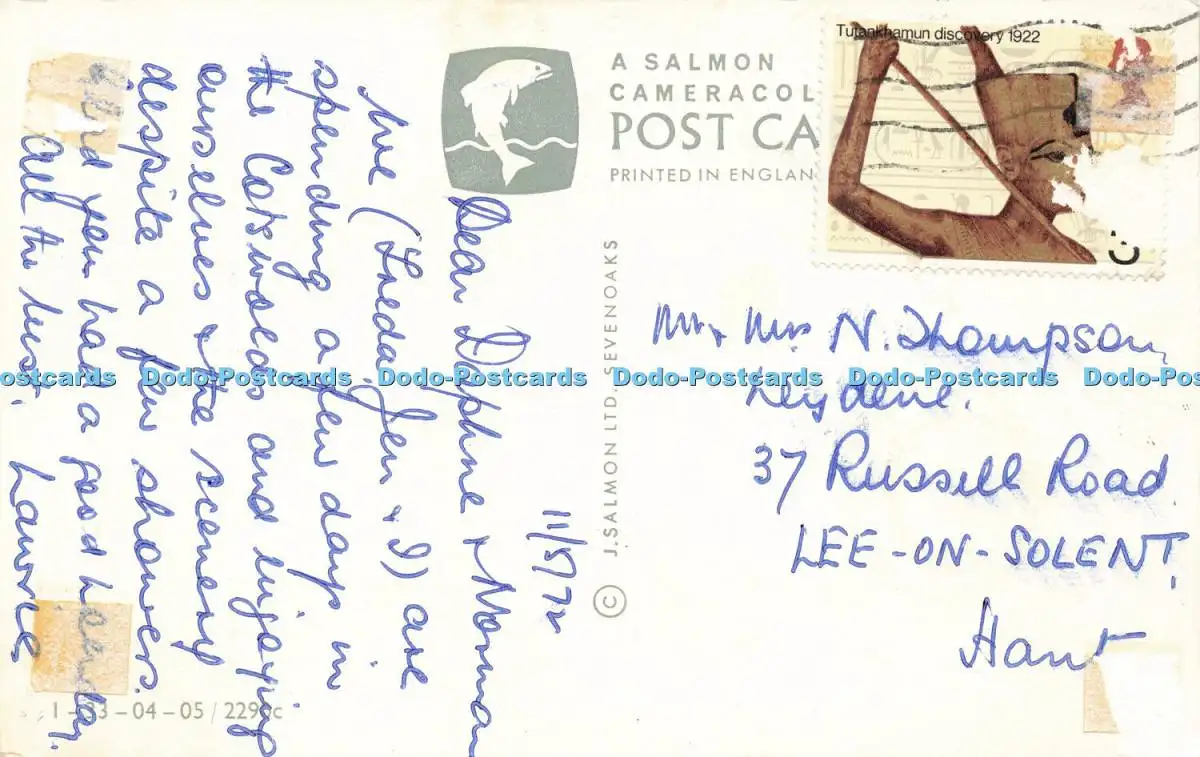 11/5/72
Dear Daphne & Norman
We (Freda, Jen & I) are
spending a few days in
the Cotswolds and enjoying
ourselves & the scenery
despite a few showers.
you had a good
All the best.
Laurie
A SALMON
CAMERACOL
POST CA
PRINTED IN ENGLAN
© J. SALMON LTD, SEVENOAKS
Tutankhamun discovery 1922
Mr & Mrs N. Thompson,
Leydene.
37 Russell Road
LEE-ON-SOLENT,
Hant
ostcards Dodo-Postcards Dodo-Postcards Dodo-Postcards Dodo-Postcards Dodo-Postcards
04-05/229